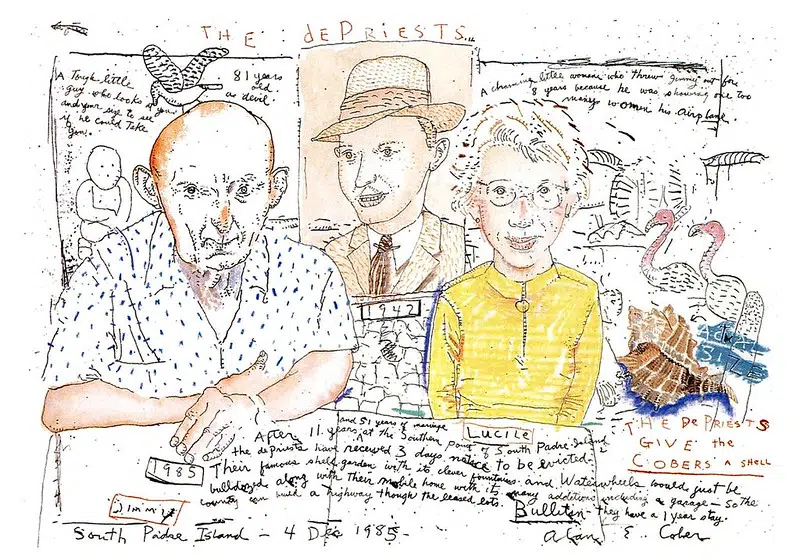 THE dePRIESTS..
A Tough little
guy who looks at you
and your size to see
if he could Take
You.
81 years
old
as devil
A charming little woman who threw Jimmy out for
8 years because he was showing one too
many women his airplane
1942
ACTUAL
SIZE
THE dePRIESTS
GIVE the
COBERS A SHELL
LUCILE
and 51 years of marriage
After 11 years at the Southern point of South Padre Island
the dePriests have received 3 days notice to be evicted.
Their famous shell garden with its clever fountains and Waterwheels would just be
bulldozed along with their mobile home with its many additions including a garage - so the
country can build a highway though the leased lots.
Bulletin - they have a 1 year stay.
1985
Jimmy
South Padre Island - 4 Dec 1985 -
Alan E. Cober